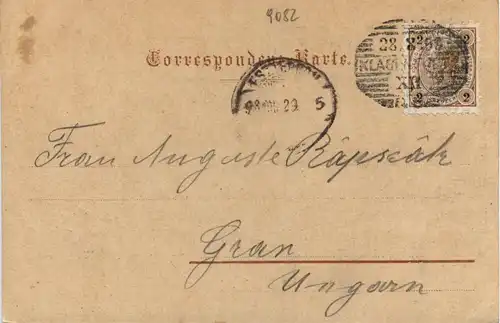 9082
Correspondenz-Karte.
28. 8. 98
KLAG
XII
2 2
98 AUG 29
5
Frau Auguste Rápscák
Gran
Ungarn